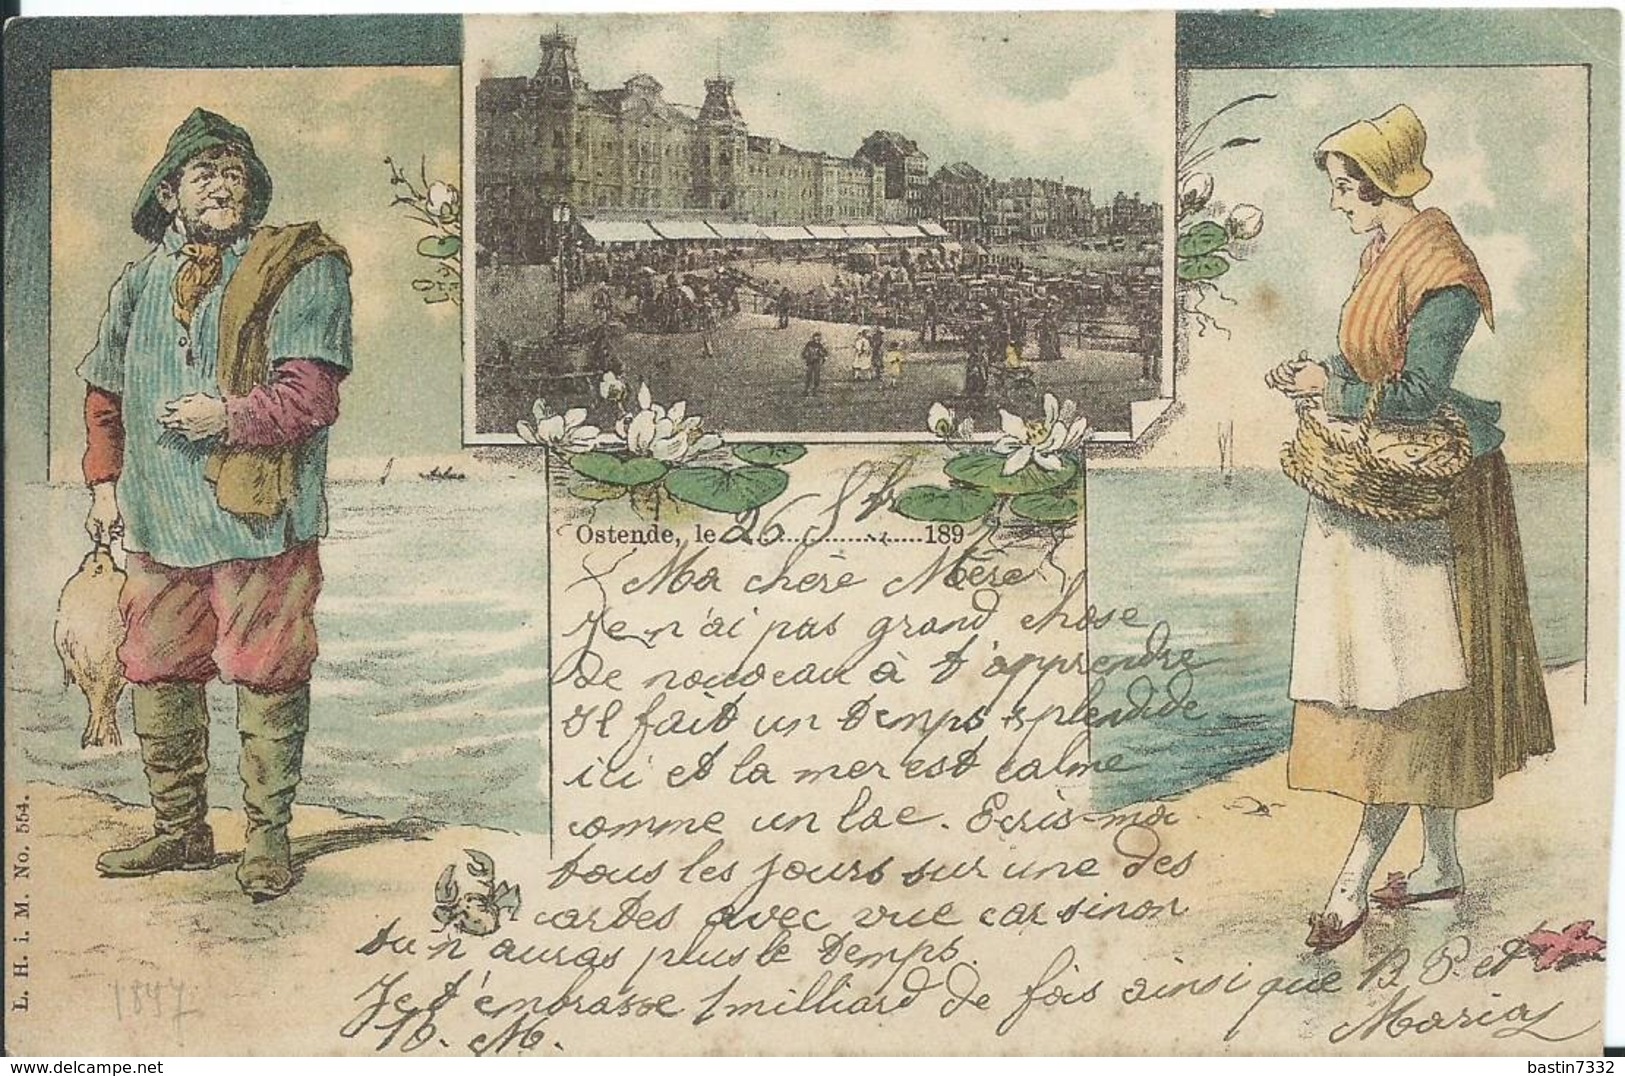 Ostende, le 26 189
Ma chère Mère
Je n'ai pas grand chose
de nouveau à t'apprendre
Il fait un temps splendide
ici et la mer est calme
comme un lac. Ecris-moi
tous les jours sur une des
cartes avec vue car sinon
tu n'auras plus le temps.
Je t'embrasse 1 milliard de fois ainsi que B. P. et
M. Maria
L. H. i. M. No. 554.
1897
bastin7332